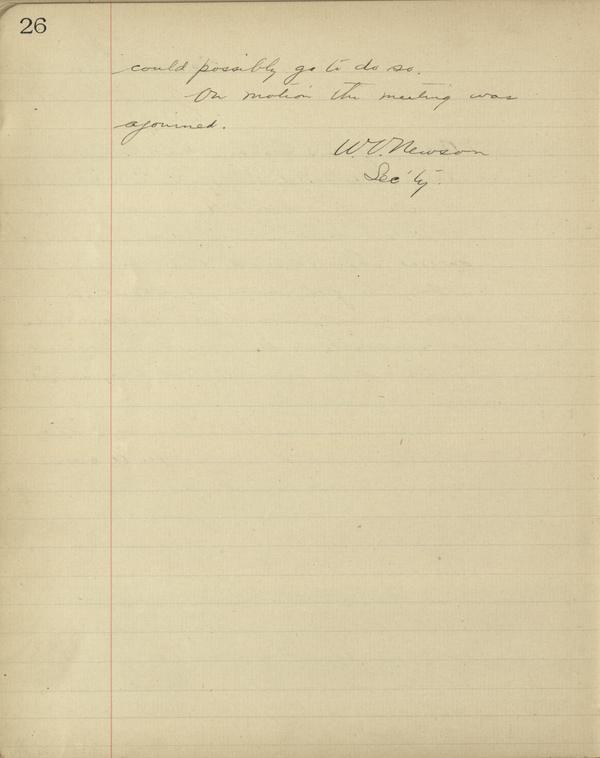 26
could possibly go to do so.
On motion the meeting was
ajourned.
W.V. Newsom
Sec'ty.